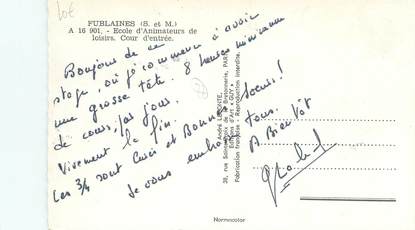 10€
FUBLAINES (S. et M.)
A 16 901. - Ecole d'Animateurs de
loisirs. Cour d'entrée.
Bonjour de ce
stage, où je commence à avoir
une grosse tête. 8 heures minimum
de cours par jour.
Vivement la fin.
Les 3/4 sont Curés et Bonnes Soeurs!
Je vous embrasse tous.
A Bientôt
André LECONTE,
38, rue Sainte-Croix de la Bretonnerie, PARIS
Editions d'Art "GUY"
Fabrication française - Reproduction interdite.
Normocolor